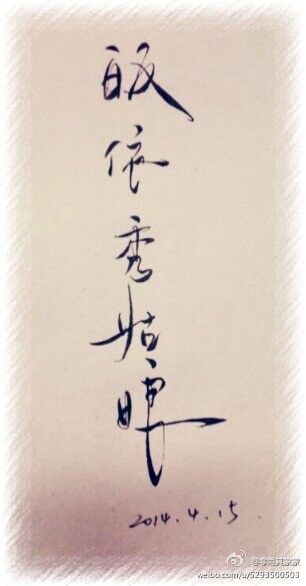 皈依秀姑
2014.4.15
weibo.com/u/5293500503